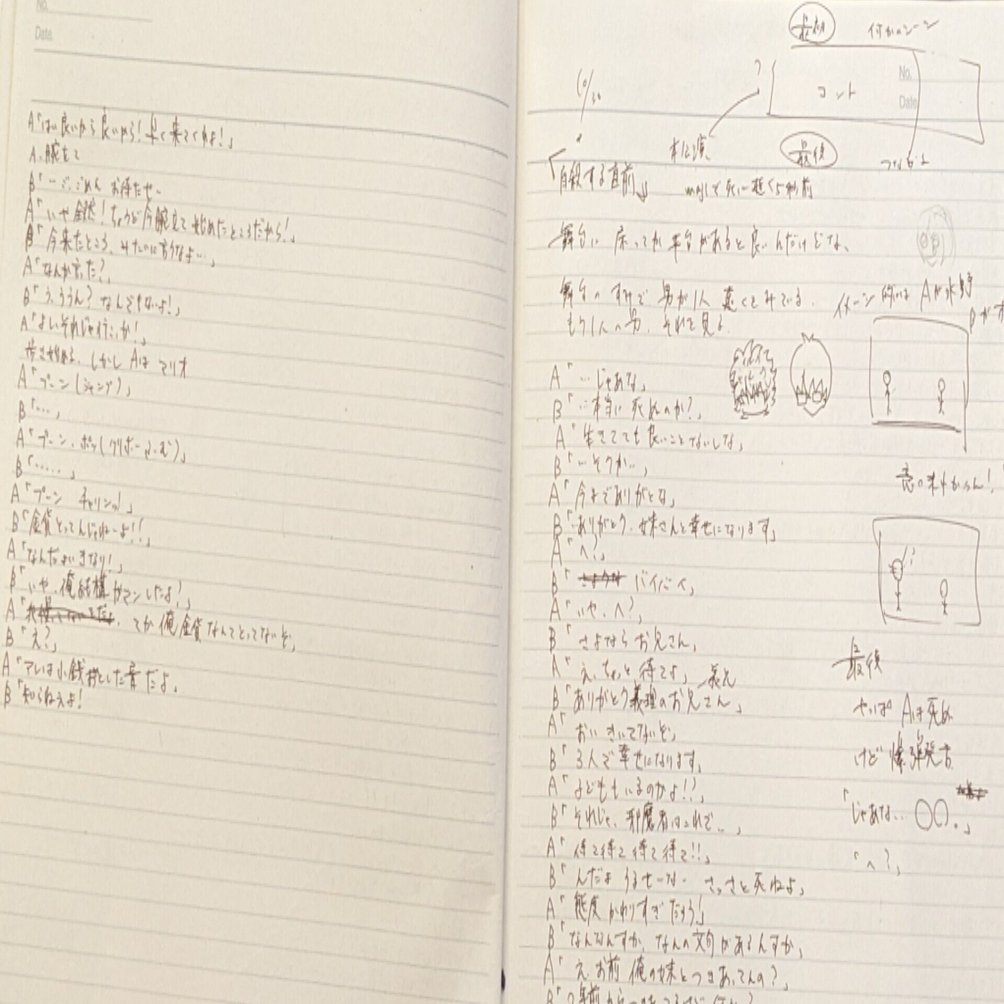 No.
Date
A「はい良いから良いから！早く来てくれよ！」
A、腕立て
B「…ご、ごめん お待たせ…
A「いや全然！ちょうど今腕立て始めたところだから！」
B「今来たところ、みたいに言うなよ…」
A「なんか言った？」
B「う、ううん？なんでもないよ！」
A「よしそれじゃ行こか！」
歩き始める、しかし Aは マリオ
A「プーン(ジャンプ)」
B「…」
A「プーン、ポッ(クリボーふむ)」
B「……」
A「プーン チャリンッ！」
B「金貨とってんじゃねーよ！！」
A「なんだよいきなり！」
B「いや、俺結構ガマンしたよ！」
A「てか俺金貨なんてとってないぞ」
B「え？」
A「アレは小銭落とした音だよ」
B「知らねぇよ！
最初
何かのシーン
No.
Date
コント
？
10/30
本公演
最後
つながる
「自殺する直前」
舞台に 床ってか平台があると良いんだけどな、
舞台のすみで 男が1人
もう1人の男、それを見る
Aが水野
A「…じゃあな」
B「…本当に死ぬのか？」
A「生きてても良いことないしな」
B「…そうか…」
A「今までありがとな」
B「ありがとう、妹さんと幸せになります」
A「へ？」
B「バイバイ」
A「いや、へ？」
B「さよならお兄さん」
A「え、ちょっと待てよ」
B「ありがとう義理のお兄さん」
A「おい きいてないぞ」
B「3人で幸せになります」
A「子どももいるのかよ！？」
B「それじゃ、邪魔者はこれで…」
A「待て待て待て待て！！」
B「んだよ うるせーな… さっさと死ねよ」
A「態度かわりすぎだろう！」
B「なんなんすか、なんの文句があるんすか」
A「え、お前 俺の妹とつきあってんの？」
最後
やっぱ Aは死ぬ
けど 爆弾発言
「じゃあな… 〇〇。」
「へ？」